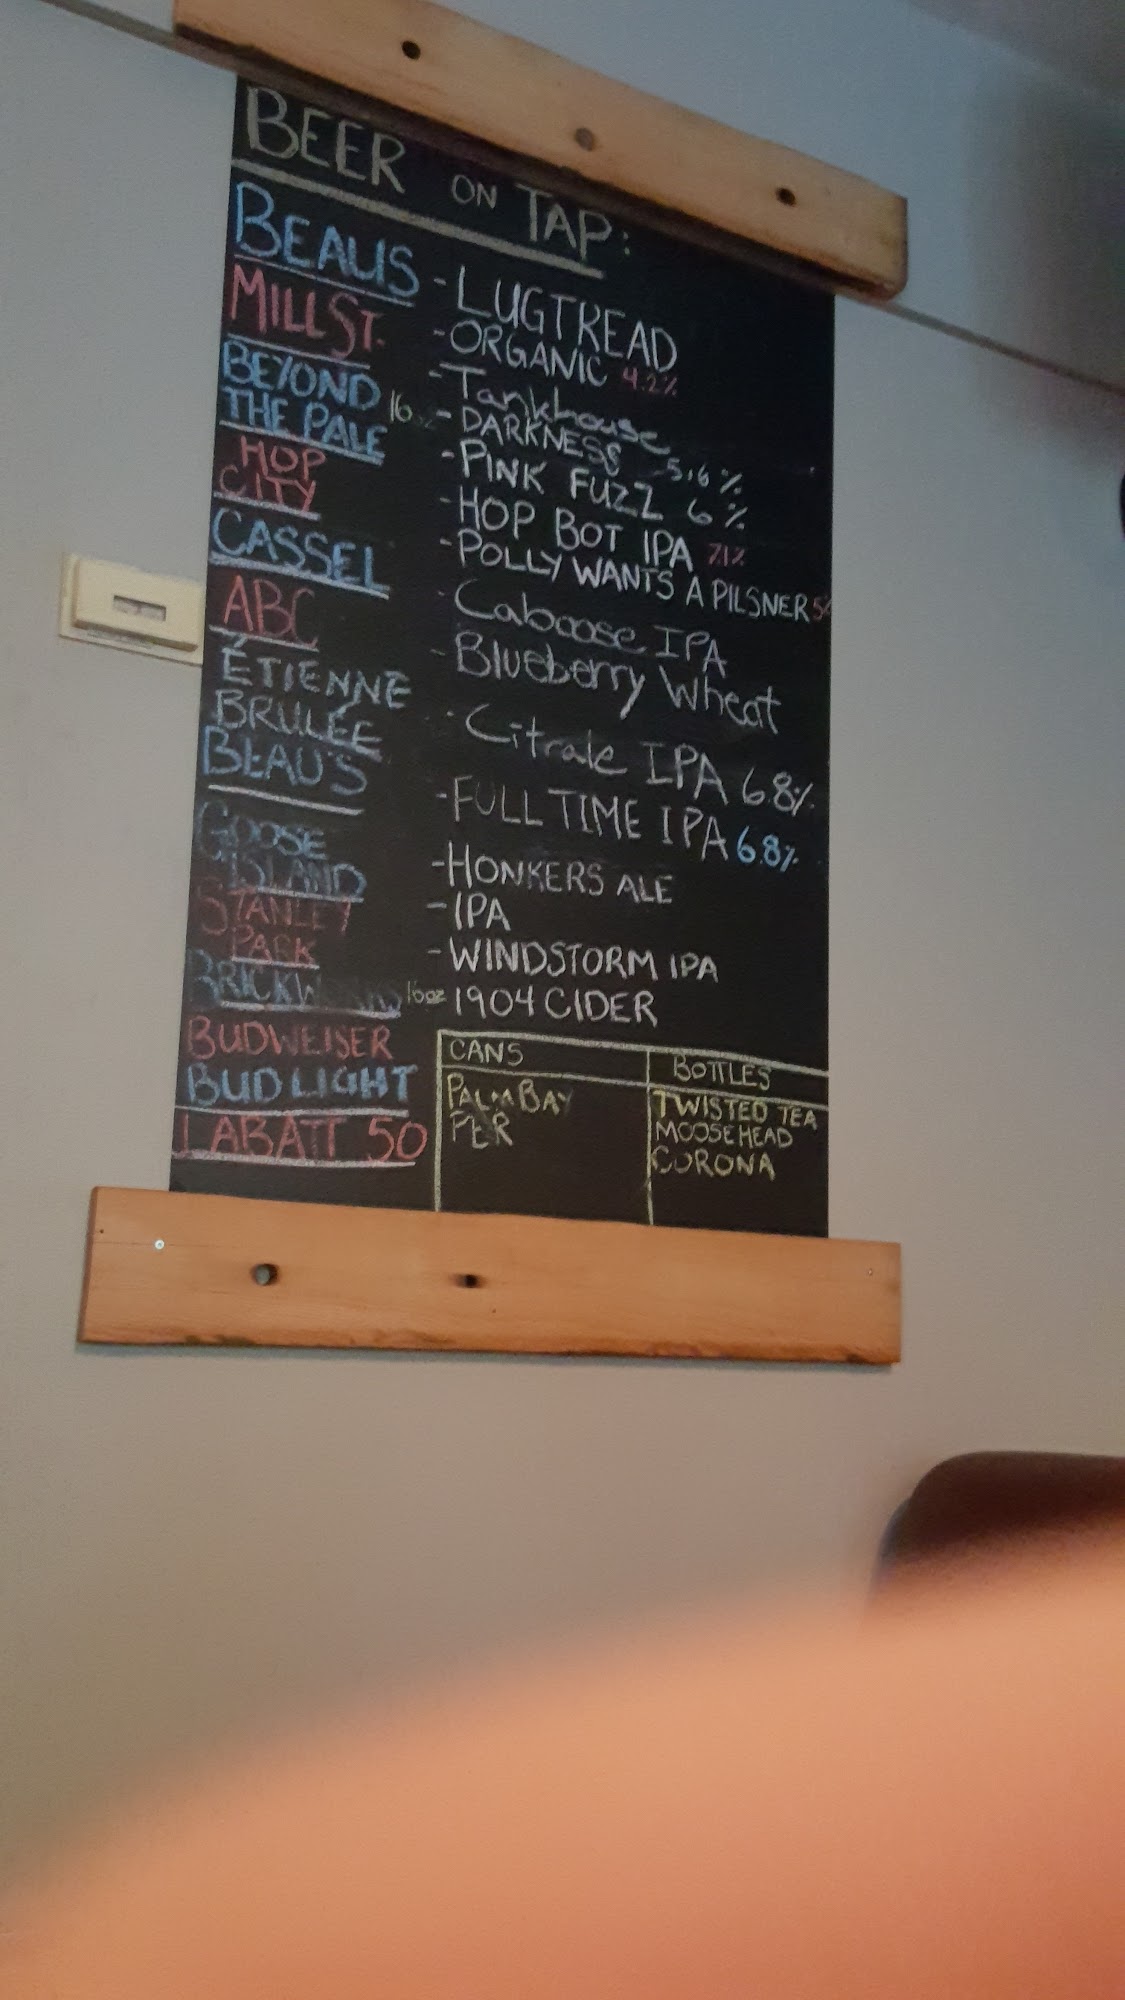 BEER ON TAP:
BEAUS - LUGTREAD
MILL ST. - ORGANIC 4.2%
- Tankhouse
BEYOND
THE PALE 16oz - DARKNESS - 5.6%
- PINK FUZZ 6%
HOP
CITY - HOP BOT IPA 7.1%
- POLLY WANTS A PILSNER
CASSEL - Caboose IPA
ABC - Blueberry Wheat
ÉTIENNE
BRULÉE - Citrale IPA 6.8%
BEAU'S - FULL TIME IPA 6.8%
GOOSE
ISLAND - HONKERS ALE
- IPA
STANLEY
PARK - WINDSTORM IPA
BRICKWORKS 16oz 1904 CIDER
BUDWEISER
BUD LIGHT
LABATT 50
CANS
PALM BAY
PER
BOTTLES
TWISTED TEA
MOOSEHEAD
CORONA